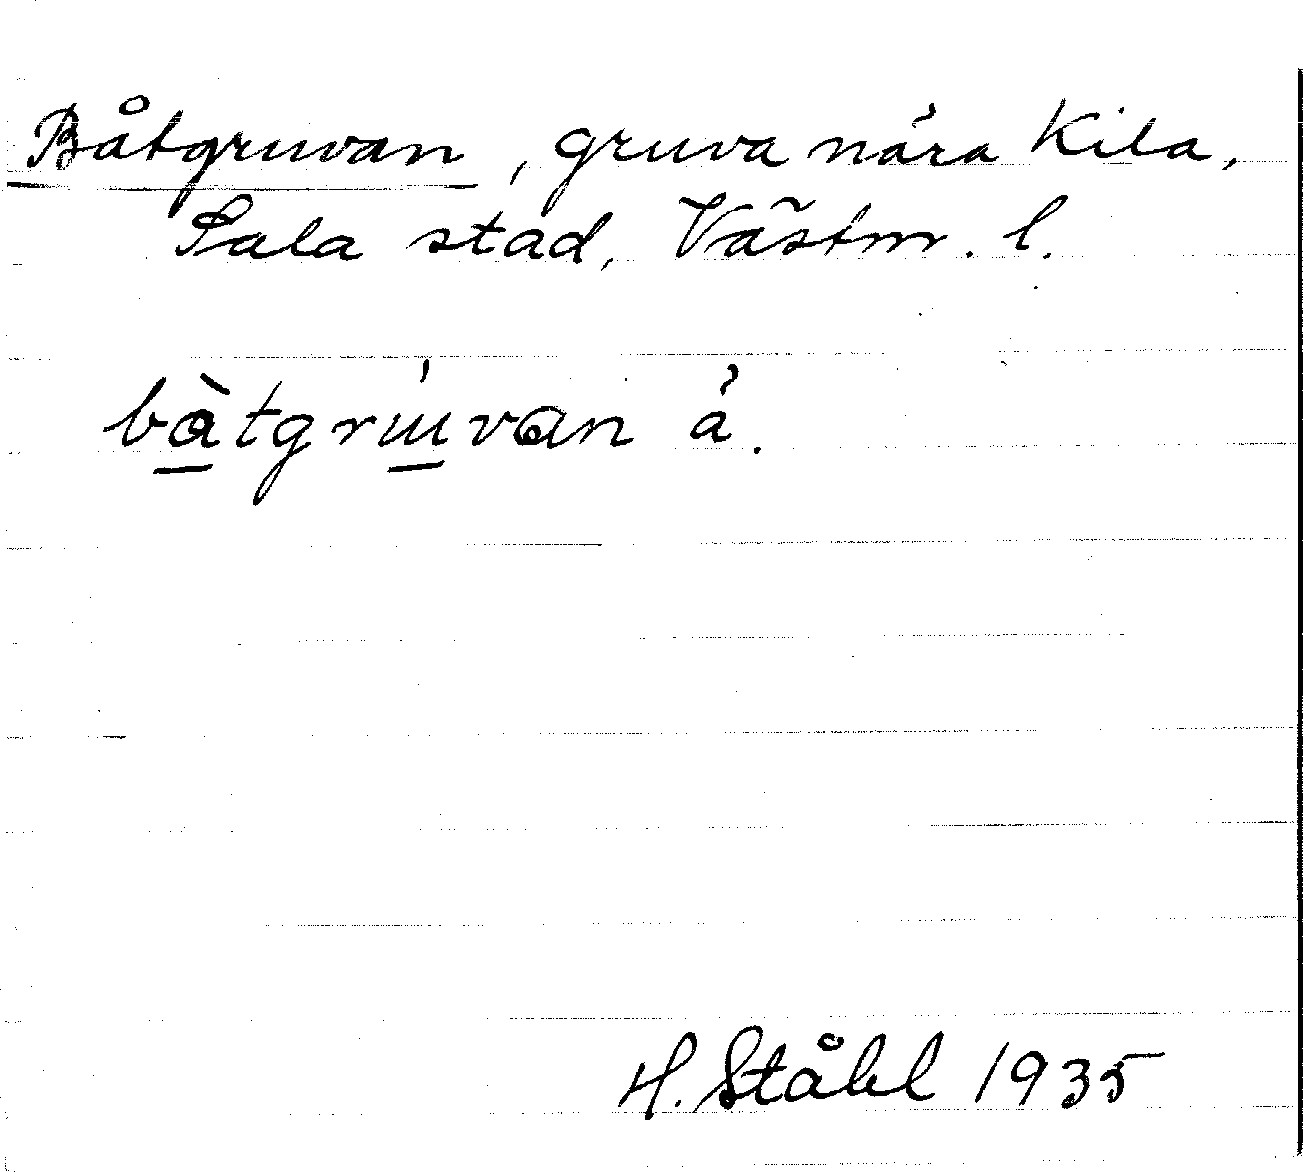 Båtgruvan, gruva nära Kila,
Sala stad, Västm. l.
bàtgrúvan å.
H. Ståhl 1935